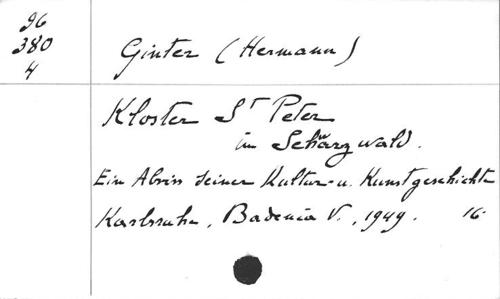 96
380
4
Ginter (Hermann)
Kloster St Peter
im Schwarzwald.
Ein Abriss seiner Kultur- u. Kunstgeschichte
Karlsruhe, Badenia V., 1949. 16-